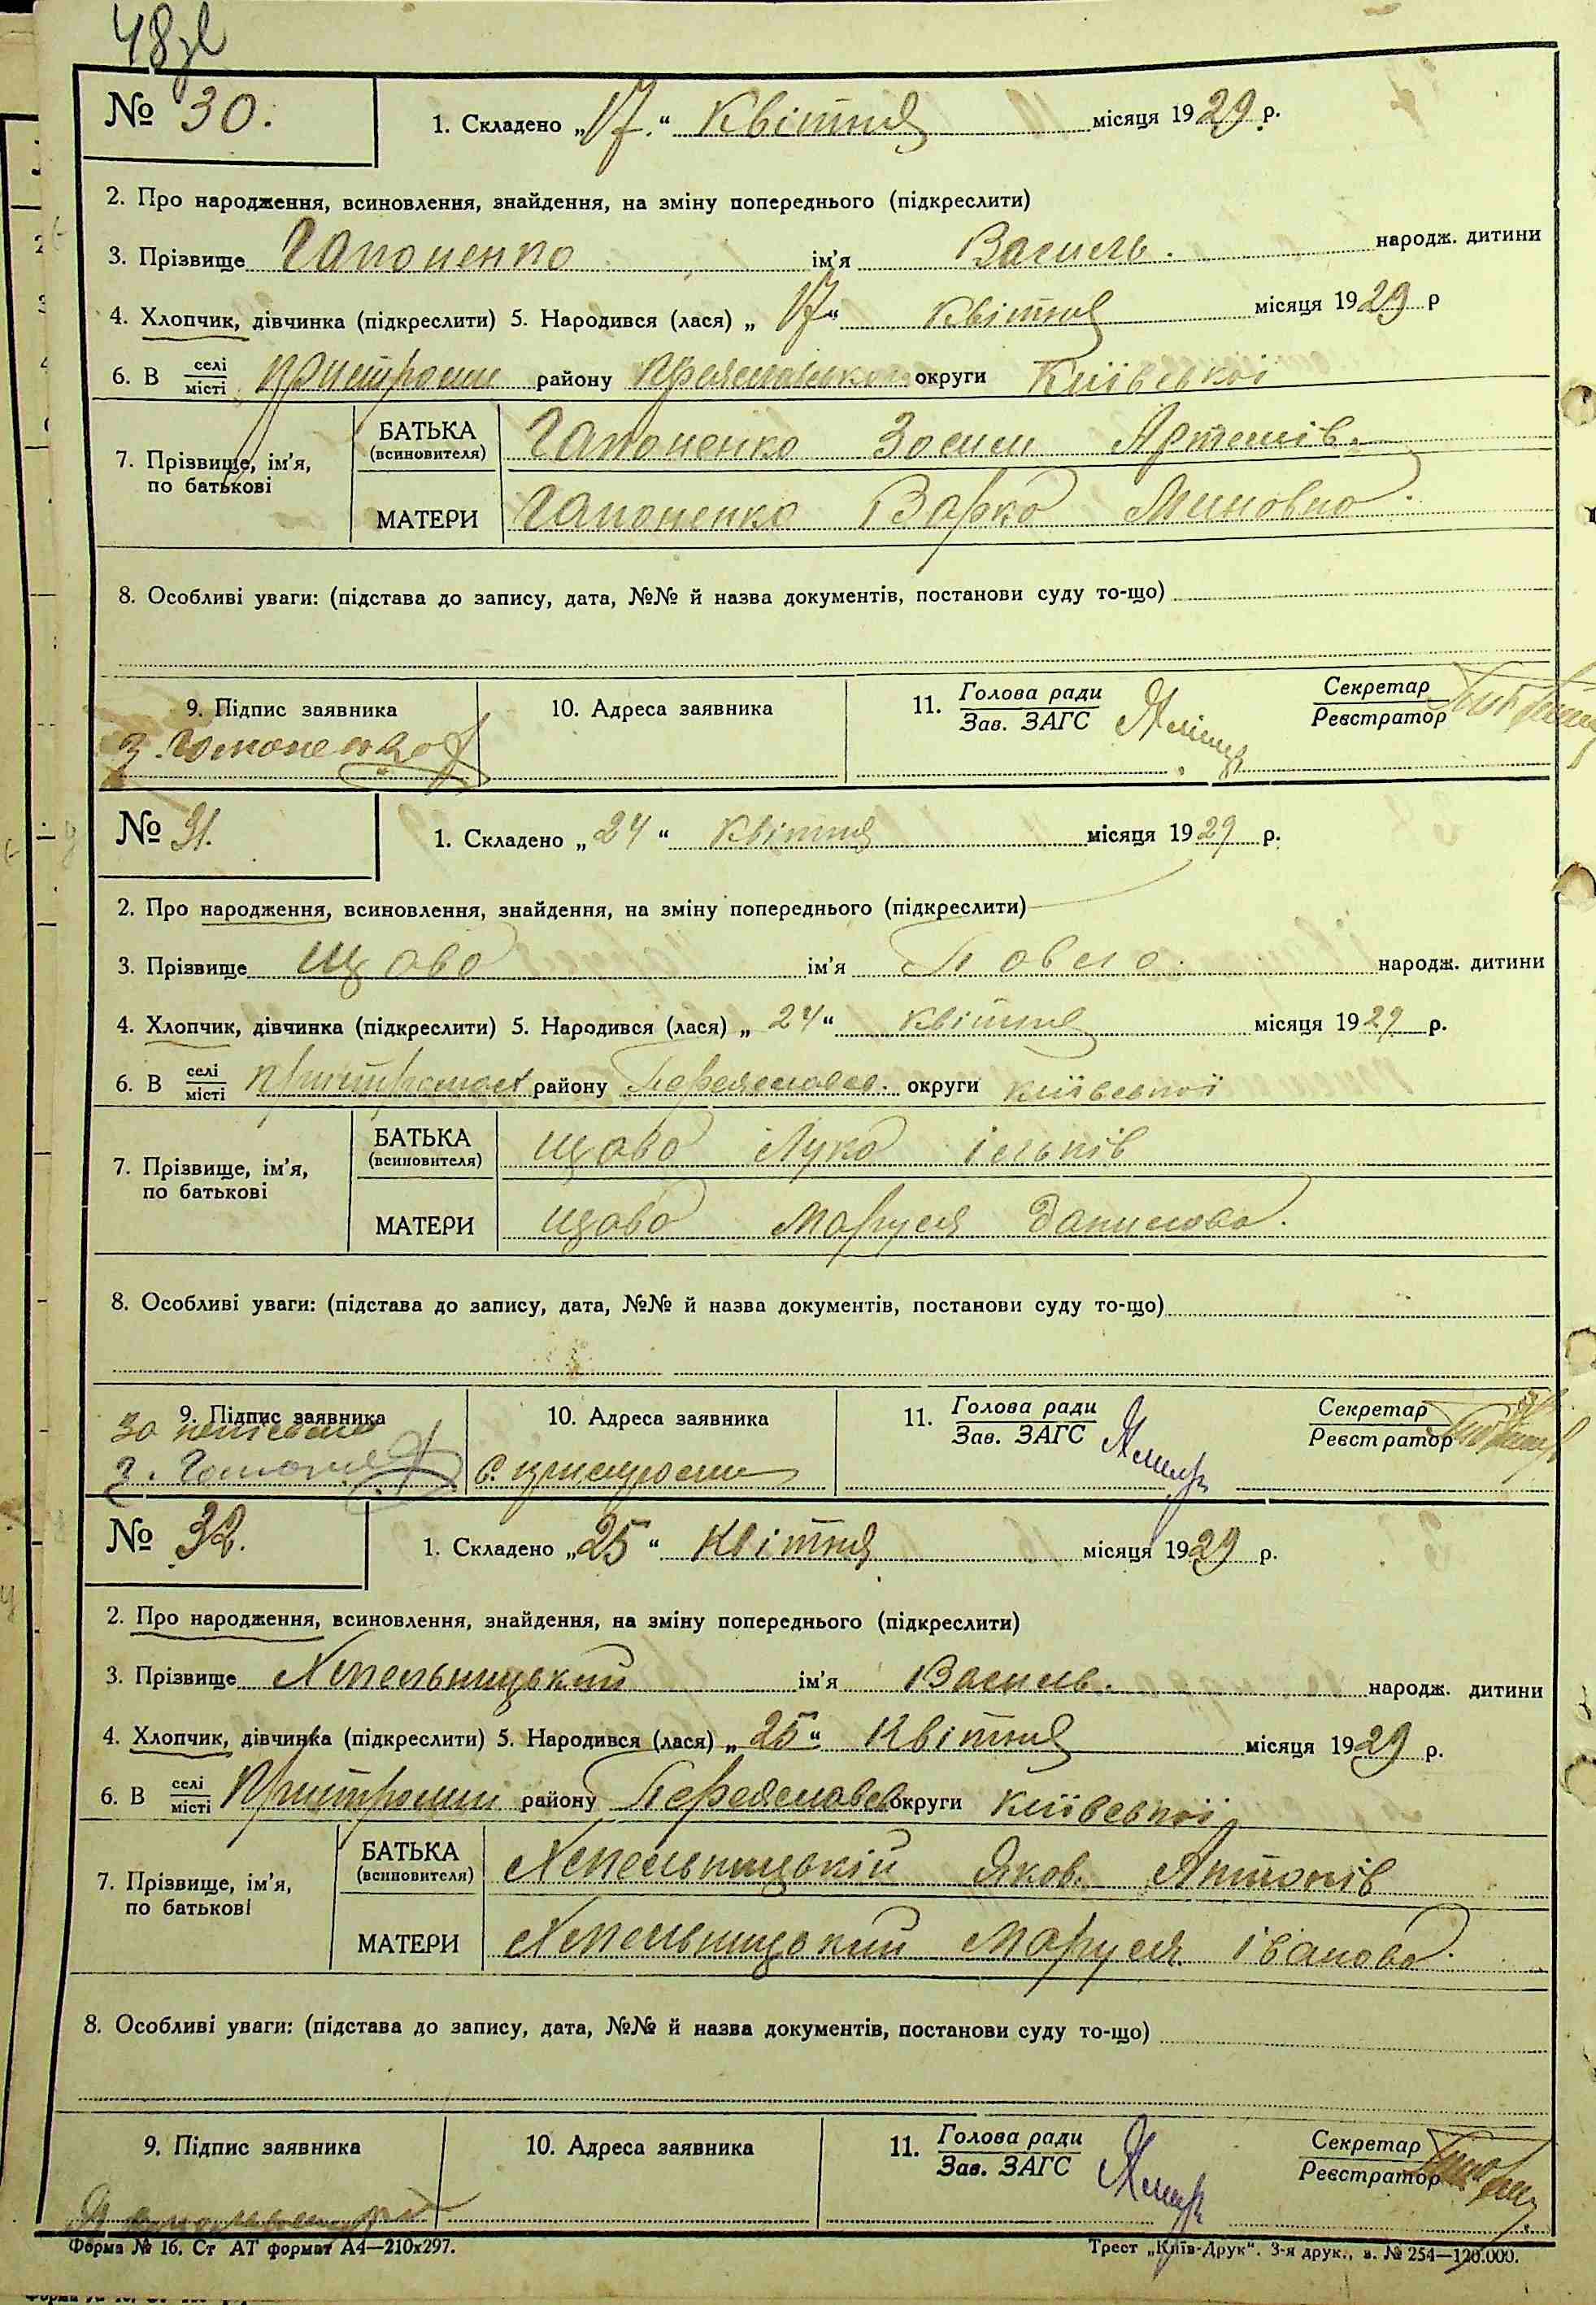 48зв
№ 30. 1. Складено „17.“ Квітня місяця 1929 р.
2. Про народження, всиновлення, знайдення, на зміну попереднього (підкреслити)
3. Прізвище Гапоненко ім'я Василь. народж. дитини
4. Хлопчик, дівчинка (підкреслити) 5. Народився (лася) „17“ Квітня місяця 1929 р
6. В селі місті Пристроми району округи Київської
7. Прізвище, ім'я, по батькові
БАТЬКА (всиновителя) Гапоненко Зосим Артемів.
МАТЕРИ Гапоненко Варка Миновна.
8. Особливі уваги: (підстава до запису, дата, №№ й назва документів, постанови суду то-що)
9. Підпис заявника 10. Адреса заявника 11. Голова ради Зав. ЗАГС Секретар Реєстратор
З. Гапоненко
№ 31. 1. Складено „24“ Квітня місяця 1929 р.
2. Про народження, всиновлення, знайдення, на зміну попереднього (підкреслити)
3. Прізвище Щаба ім'я Павло. народж. дитини
4. Хлопчик, дівчинка (підкреслити) 5. Народився (лася) „24“ Квітня місяця 1929 р.
6. В селі місті Пристромах району округи Київської
7. Прізвище, ім'я, по батькові
БАТЬКА (всиновителя) Щаба Лука Ільків
МАТЕРИ Щаба Маруся Данилова.
8. Особливі уваги: (підстава до запису, дата, №№ й назва документів, постанови суду то-що)
9. Підпис заявника 10. Адреса заявника 11. Голова ради Зав. ЗАГС Секретар Реєстратор
За
З. с. Пристроми
№ 32. 1. Складено „25“ Квітня місяця 1929 р.
2. Про народження, всиновлення, знайдення, на зміну попереднього (підкреслити)
3. Прізвище Хмельницький ім'я Василь. народж. дитини
4. Хлопчик, дівчинка (підкреслити) 5. Народився (лася) „25“ Квітня місяця 1929 р.
6. В селі місті Пристроми району Переяславсь округи Київської
7. Прізвище, ім'я, по батькові
БАТЬКА (всиновителя) Хмельницькій Яков. Антонів
МАТЕРИ Хмельницький Маруся Іванова.
8. Особливі уваги: (підстава до запису, дата, №№ й назва документів, постанови суду то-що)
9. Підпис заявника 10. Адреса заявника 11. Голова ради Зав. ЗАГС Секретар Реєстратор
Форма № 16. Ст АТ формат А4—210х297. Трест „Київ-Друк“. 3-я друк., з. № 254—120.000.